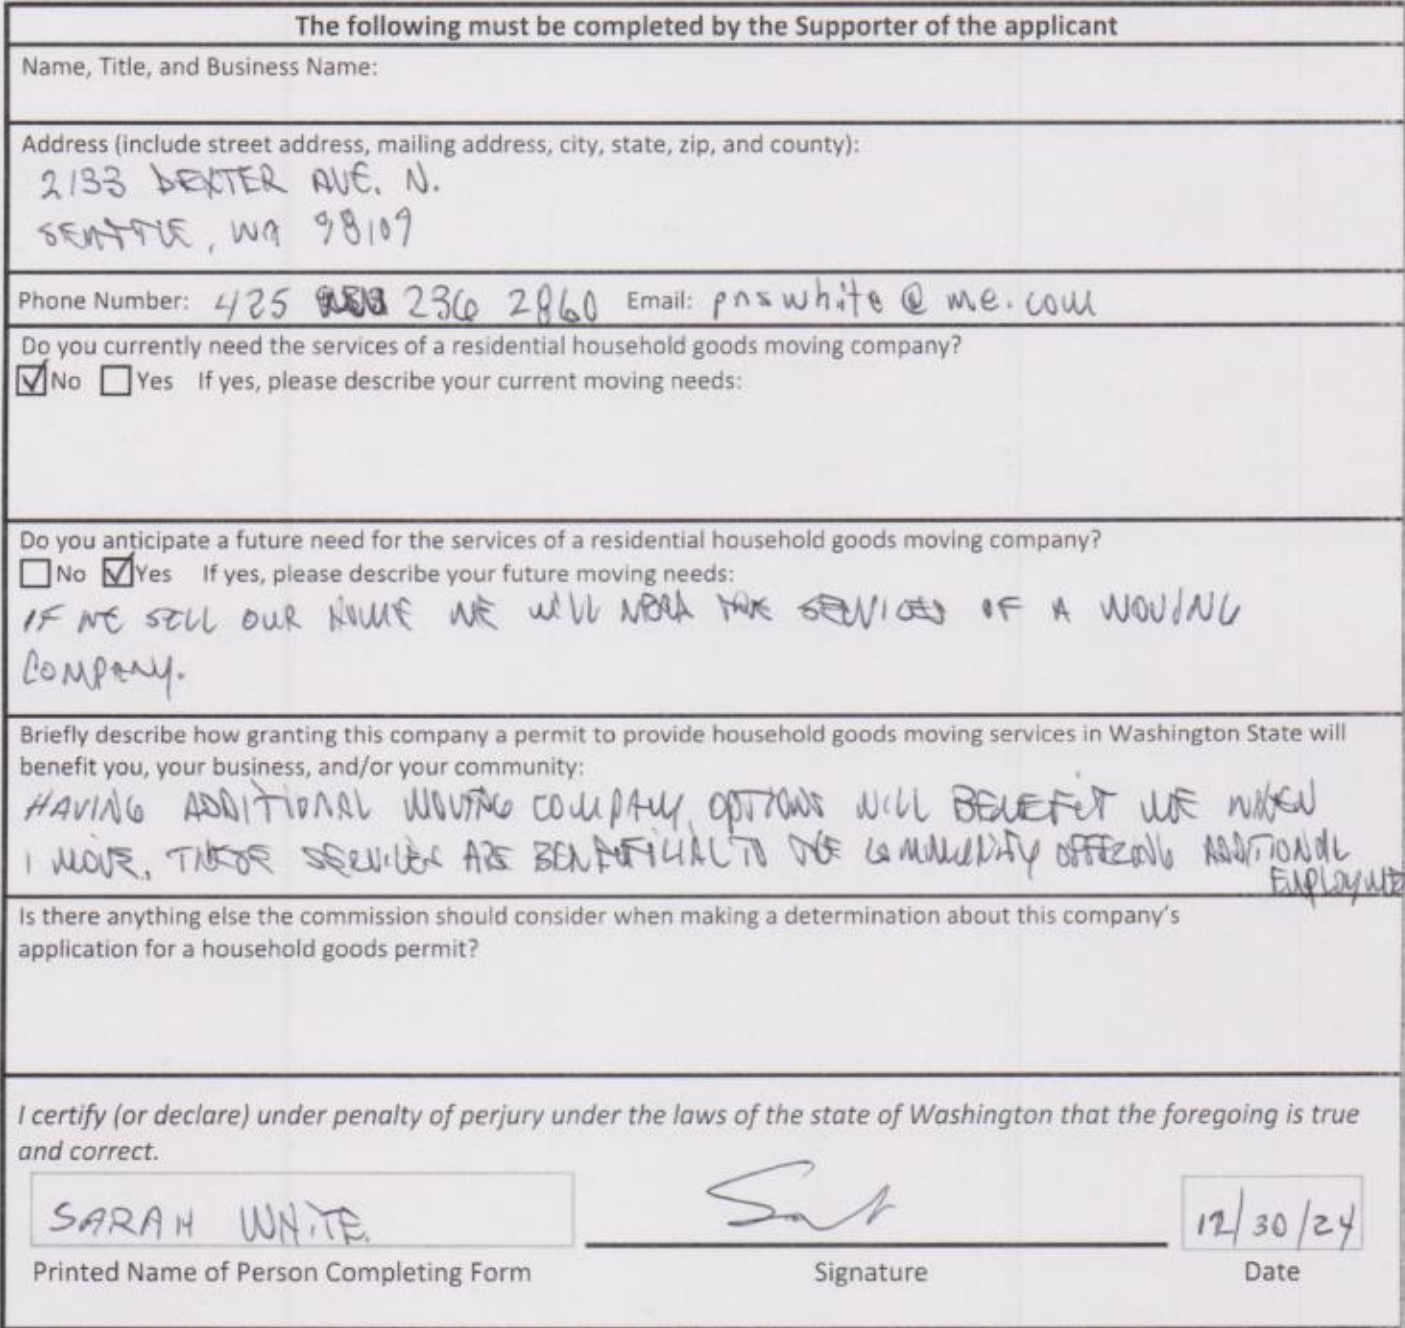 The following must be completed by the Supporter of the applicant
Name, Title, and Business Name:
Address (include street address, mailing address, city, state, zip, and county):
2133 DEXTER AVE. N.
SEATTLE, WA 98109
Phone Number: 425 236 2860 Email: pnswhite@me.com
Do you currently need the services of a residential household goods moving company?
No Yes If yes, please describe your current moving needs:
Do you anticipate a future need for the services of a residential household goods moving company?
No Yes If yes, please describe your future moving needs:
IF WE SELL OUR HOME WE WILL NEED THE SERVICES OF A MOVING
COMPANY.
Briefly describe how granting this company a permit to provide household goods moving services in Washington State will
benefit you, your business, and/or your community:
HAVING ADDITIONAL MOVING COMPANY OPTIONS WILL BENEFIT ME WHEN
I MOVE. THESE SERVICES ARE BENEFICIAL TO THE COMMUNITY OFFERING ADDITIONAL
EMPLOYME
Is there anything else the commission should consider when making a determination about this company's
application for a household goods permit?
I certify (or declare) under penalty of perjury under the laws of the state of Washington that the foregoing is true
and correct.
SARAH WHITE 12/30/24
Printed Name of Person Completing Form Signature Date